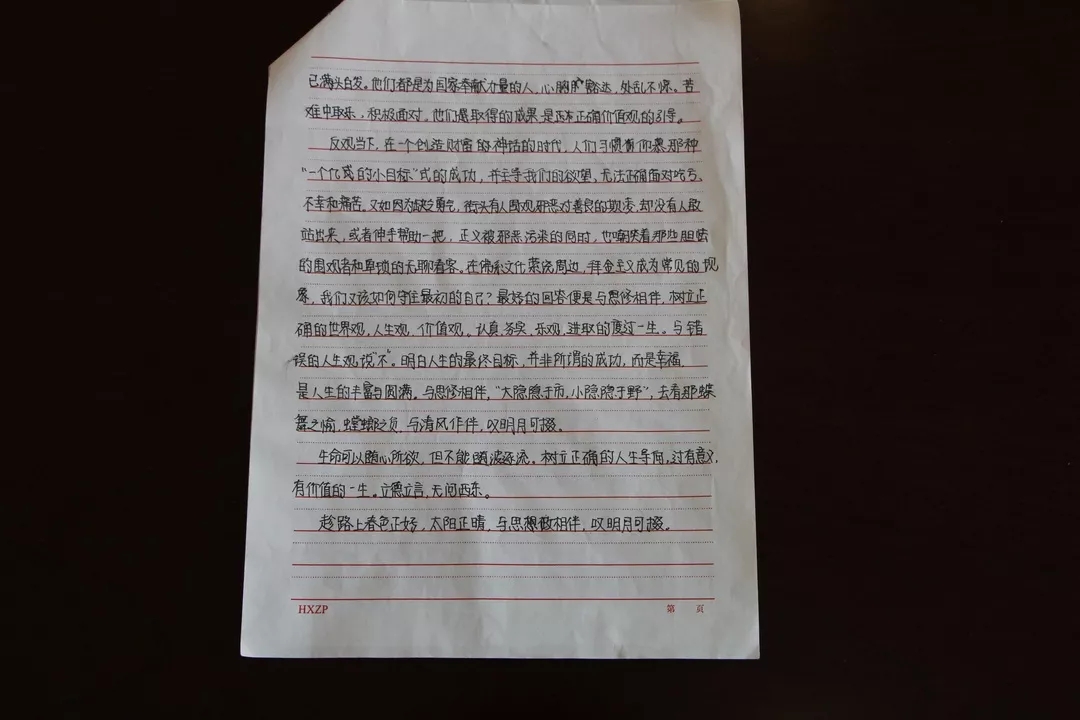 已满头白发。他们都是为国家奉献力量的人,心胸豁达,处乱不惊。苦
难中取乐,积极面对。他们感取得的成果是正确价值观的引导。
反观当下,在一个创造财富的神话的时代,人们习惯着你羡那种
“一个亿或的小目标”式的成功,并主导我们的欲望,无法正确面对吃亏,
不幸和痛苦。又如因为缺乏勇气,街头有人围观邪恶对善良的欺凌,却没有人敢
站出来,或者伸手帮助一把,正义被邪恶污染的同时,也嘲笑着那些胆怯
的围观者和卑琐的无聊看客。在佛系文化萦绕周边,拜金主义成为常见的现
象,我们又该如何守住最初的自己?最好的回答便是与思修相伴,树立正
确的世界观,人生观,价值观。认真,务实,乐观,进取的度过一生。与错
误的人生观说“不”。明白人生的最终目标,并非所谓的成功,而是幸福,
是人生的丰富与圆满。与思修相伴,“大隐隐于市,小隐隐于野”,去看那蝶
舞之愉,螳螂之负,与清风作伴,叹明月可掇。
生命可以随心所欲,但不能随波逐流。树立正确的人生导向,过有意义,
有价值的一生。立德立言,无问西东。
趁路上春色正好,太阳正晴,与思想做相伴,叹明月可掇。
HXZP
第 页